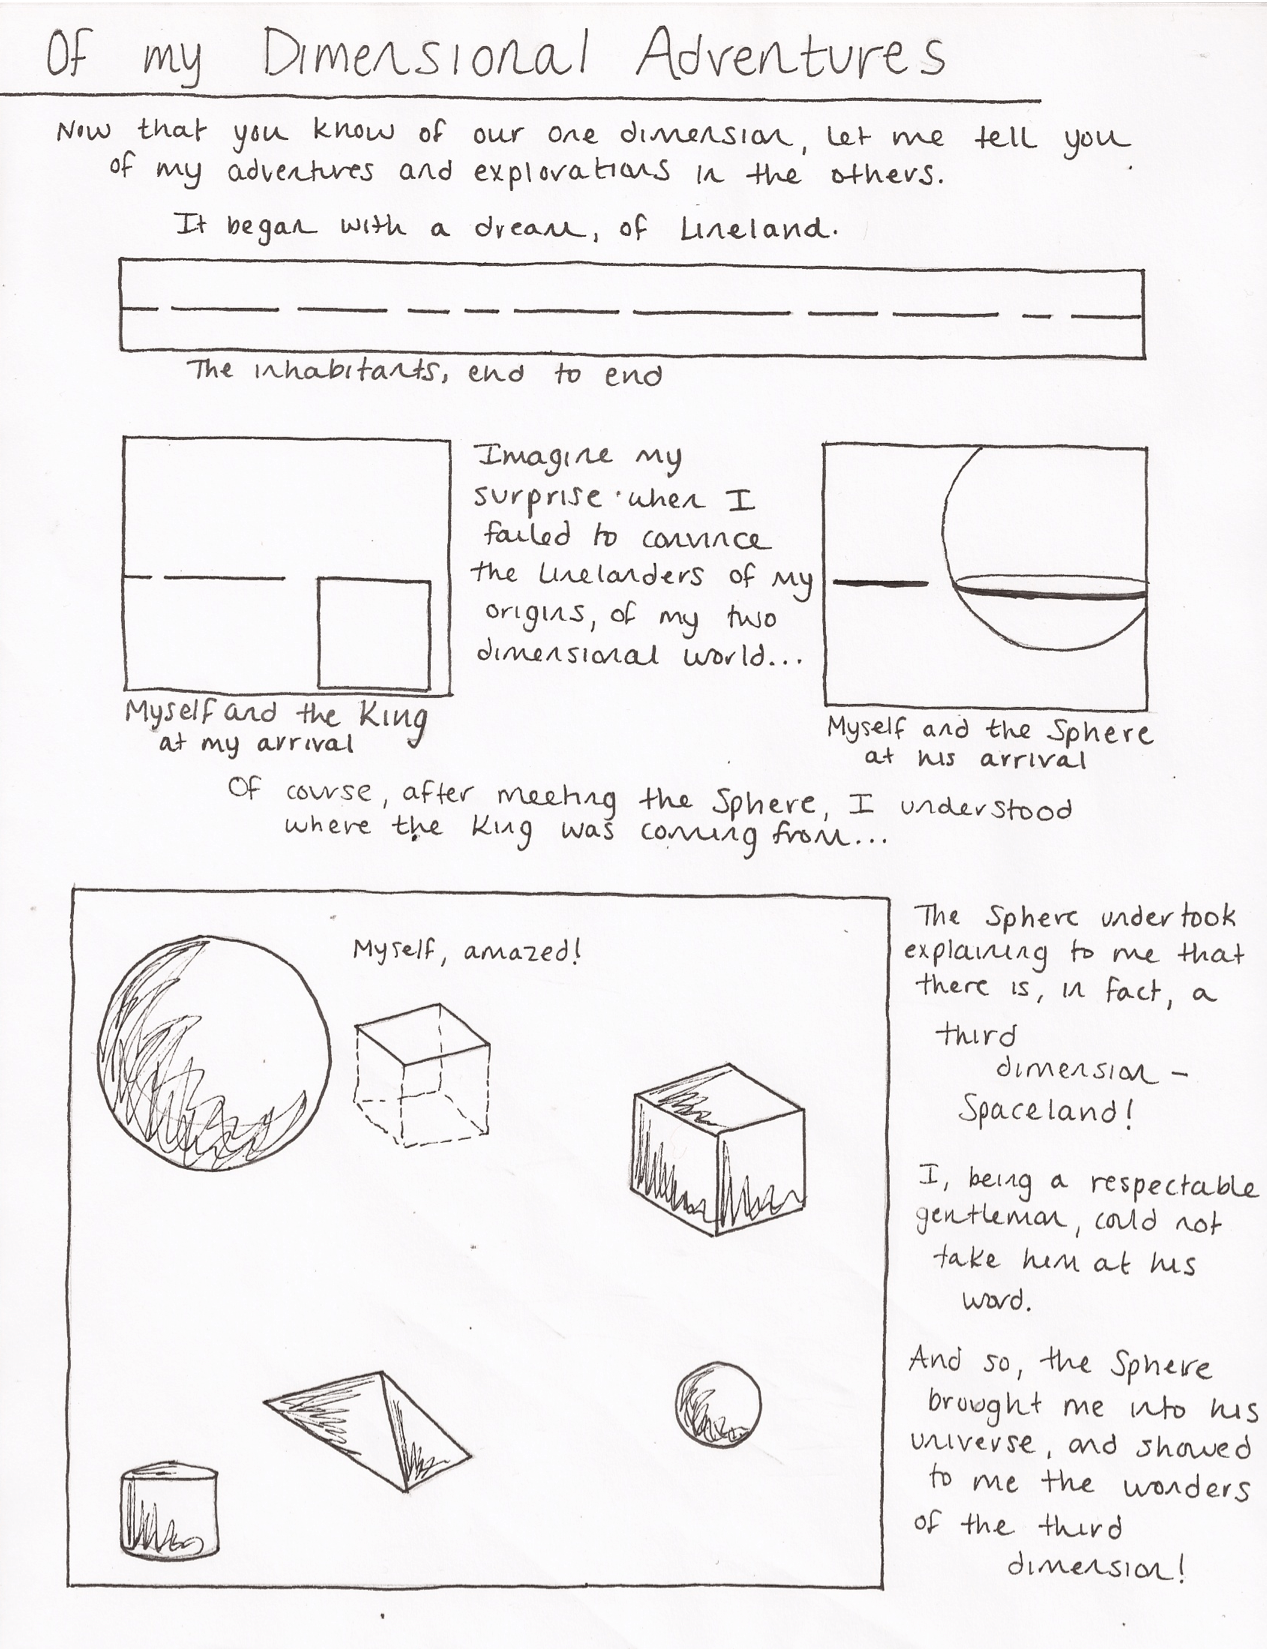 Of my Dimensional Adventures
Now that you know of our one dimension, let me tell you
of my adventures and explorations in the others.
It began with a dream, of Lineland.
The inhabitants, end to end
Imagine my
surprise when I
failed to convince
the Linelanders of my
origins, of my two
dimensional world...
Myself and the King
at my arrival
Myself and the Sphere
at his arrival
Of course, after meeting the Sphere, I understood
where the King was coming from...
Myself, amazed!
The Sphere undertook
explaining to me that
there is, in fact, a
third
dimension -
Spaceland!
I, being a respectable
gentleman, could not
take him at his
word.
And so, the Sphere
brought me into his
universe, and showed
to me the wonders
of the third
dimension!